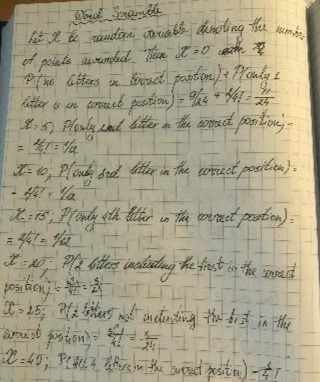 Word Scramble
Let X be random variable denoting the number
of points awarded. Then X=0
P(no letters in correct position) + P(only 1
letter is in correct position) = 9/24 + 2/4! = 11/24
X=5; P(only 2nd letter in the correct position) =
= 2/4! = 1/12
X=10; P(only 3rd letter in the correct position) =
= 2/4! = 1/12
X=15; P(only 4th letter in the correct position) =
= 2/4! = 1/12
X=20; P(2 letters including the first in the correct
position) = 3/4! = 3/24
X=25; P(2 letters not including the first in the
correct position) = 3/4! = 3/24
X=40; P(all 4 letters in the correct position) = 1/4!